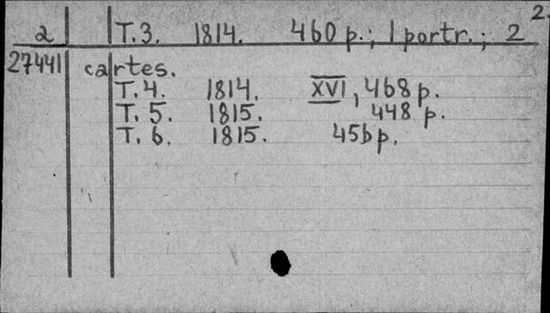 2.
2 T.3. 1814. 460 p.; 1 portr.; 2
27441 cartes.
T.4. 1814. XVI, 468 p.
T.5. 1815. 448 p.
T.6. 1815. 456 p.